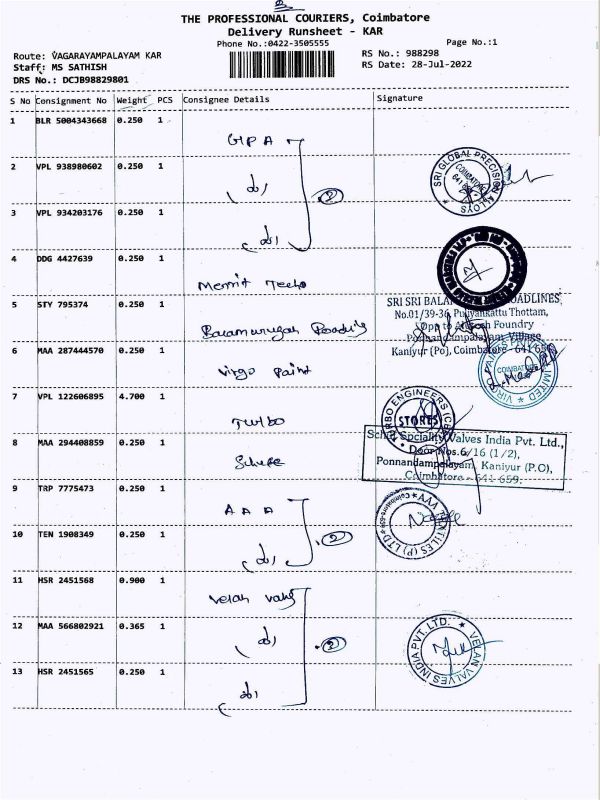 THE PROFESSIONAL COURIERS, Coimbatore
Delivery Runsheet - KAR
Phone No.:0422-3505555
Page No.:1
Route: VAGARAYAMPALAYAM KAR
RS No.: 988298
Staff: MS SATHISH
RS Date: 28-Jul-2022
DRS No.: DCJB98829801
S No Consignment No Weight PCS Consignee Details Signature
1 BLR 5004343668 0.250 1
GPA
2 VPL 938980602 0.250 1
SRI GLOBAL PRECISION ALLOYS
COIMBATORE
2
3 VPL 934203176 0.250 1
4 DDG 4427639 0.250 1
Merrit Techo
5 STY 795374 0.250 1
SRI SRI BALA ROADLINES,
No.01/39-36, Puliyankattu Thottam,
Opp to Foundry
Ponnandampalayam Village,
Kaniyur (Po), Coimbatore - 641 659
Balamurugan Roadlis
6 MAA 287444570 0.250 1
Virgo Paint
COIMBATORE
7 VPL 122606895 4.700 1
TURBO ENGINEERS
STORES
Turbo
8 MAA 294408859 0.250 1
Schur Spciality Valves India Pvt. Ltd.,
Door Nos.6/16 (1/2),
Ponnandampalayam, Kaniyur (P.O),
Coimbatore - 641 659.
9 TRP 7775473 0.250 1
A A A
AAA TEXTILES (P) LTD
10 TEN 1908349 0.250 1
2
11 HSR 2451568 0.900 1
Velan Valv
12 MAA 566802921 0.365 1
2
VELAN VALVES INDIA PVT. LTD.
13 HSR 2451565 0.250 1